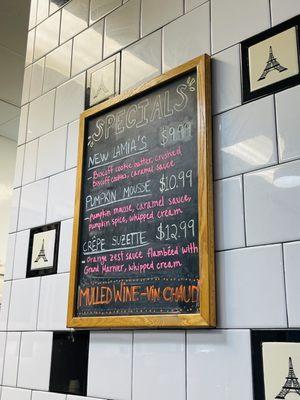 SPECIALS
NEW LAMIA'S $9.99
Biscoff cookie batter, crushed
Biscoff cookies, caramel sauce
PUMPKIN MOUSSE $10.99
Pumpkin mousse, caramel sauce,
pumpkin spice, whipped cream
CRÊPE SUZETTE $12.99
Orange zest sauce flambéed with
Grand Marnier, whipped cream
MULLED WINE-VIN CHAUD